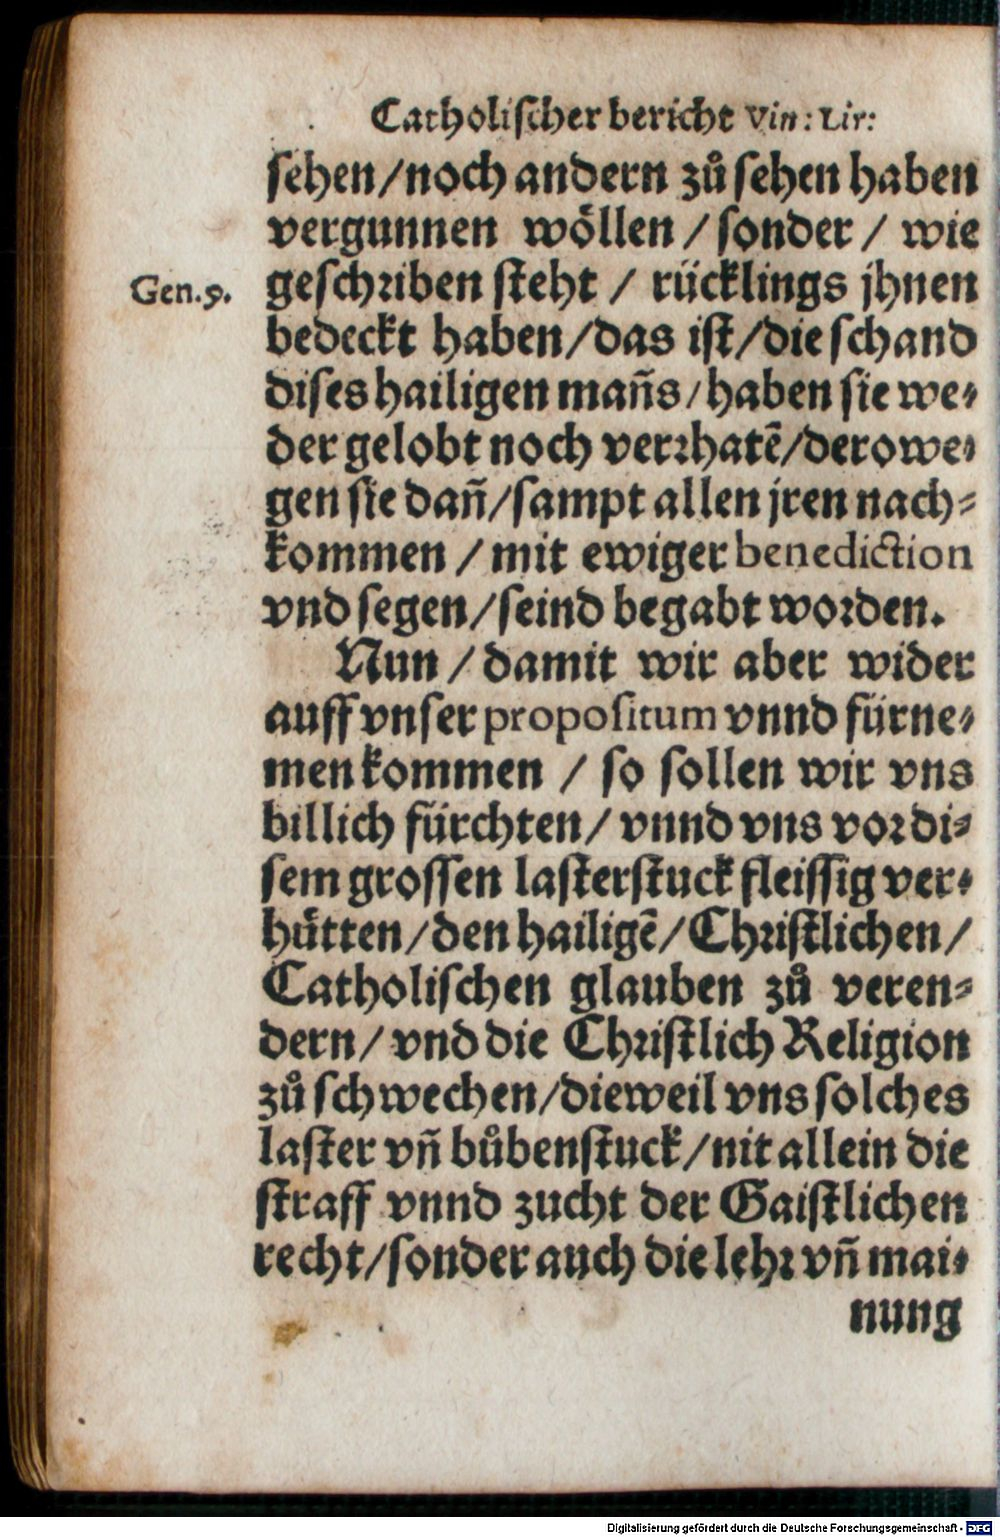 Catholischer bericht Vin: Lir:
sehen/noch andern zů sehen haben
vergunnen wöllen / sonder / wie
Gen.9.
geschriben steht / rücklings jhnen
bedeckt haben/das ist/die schand
dises hailigen mañs/haben sie we-
der gelobt noch verrhatẽ/derowe-
gen sie dañ/sampt allen jren nach-
kommen / mit ewiger benediction
vnd segen/seind begabt worden.
Nun / damit wir aber wider
auff vnser propositum vnnd fürne-
men kommen / so sollen wir vns
billich fürchten/ vnnd vns vor di-
sem grossen lasterstuck fleissig ver-
hütten/den hailigẽ/Christlichen/
Catholischen glauben zů veren-
dern/ vnd die Christlich Religion
zů schwechen/dieweil vns solches
laster vñ bůbenstuck/nit allein die
straff vnnd zucht der Gaistlichen
recht/sonder auch die lehr vñ mai-
nung
Digitalisierung gefördert durch die Deutsche Forschungsgemeinschaft - DFG